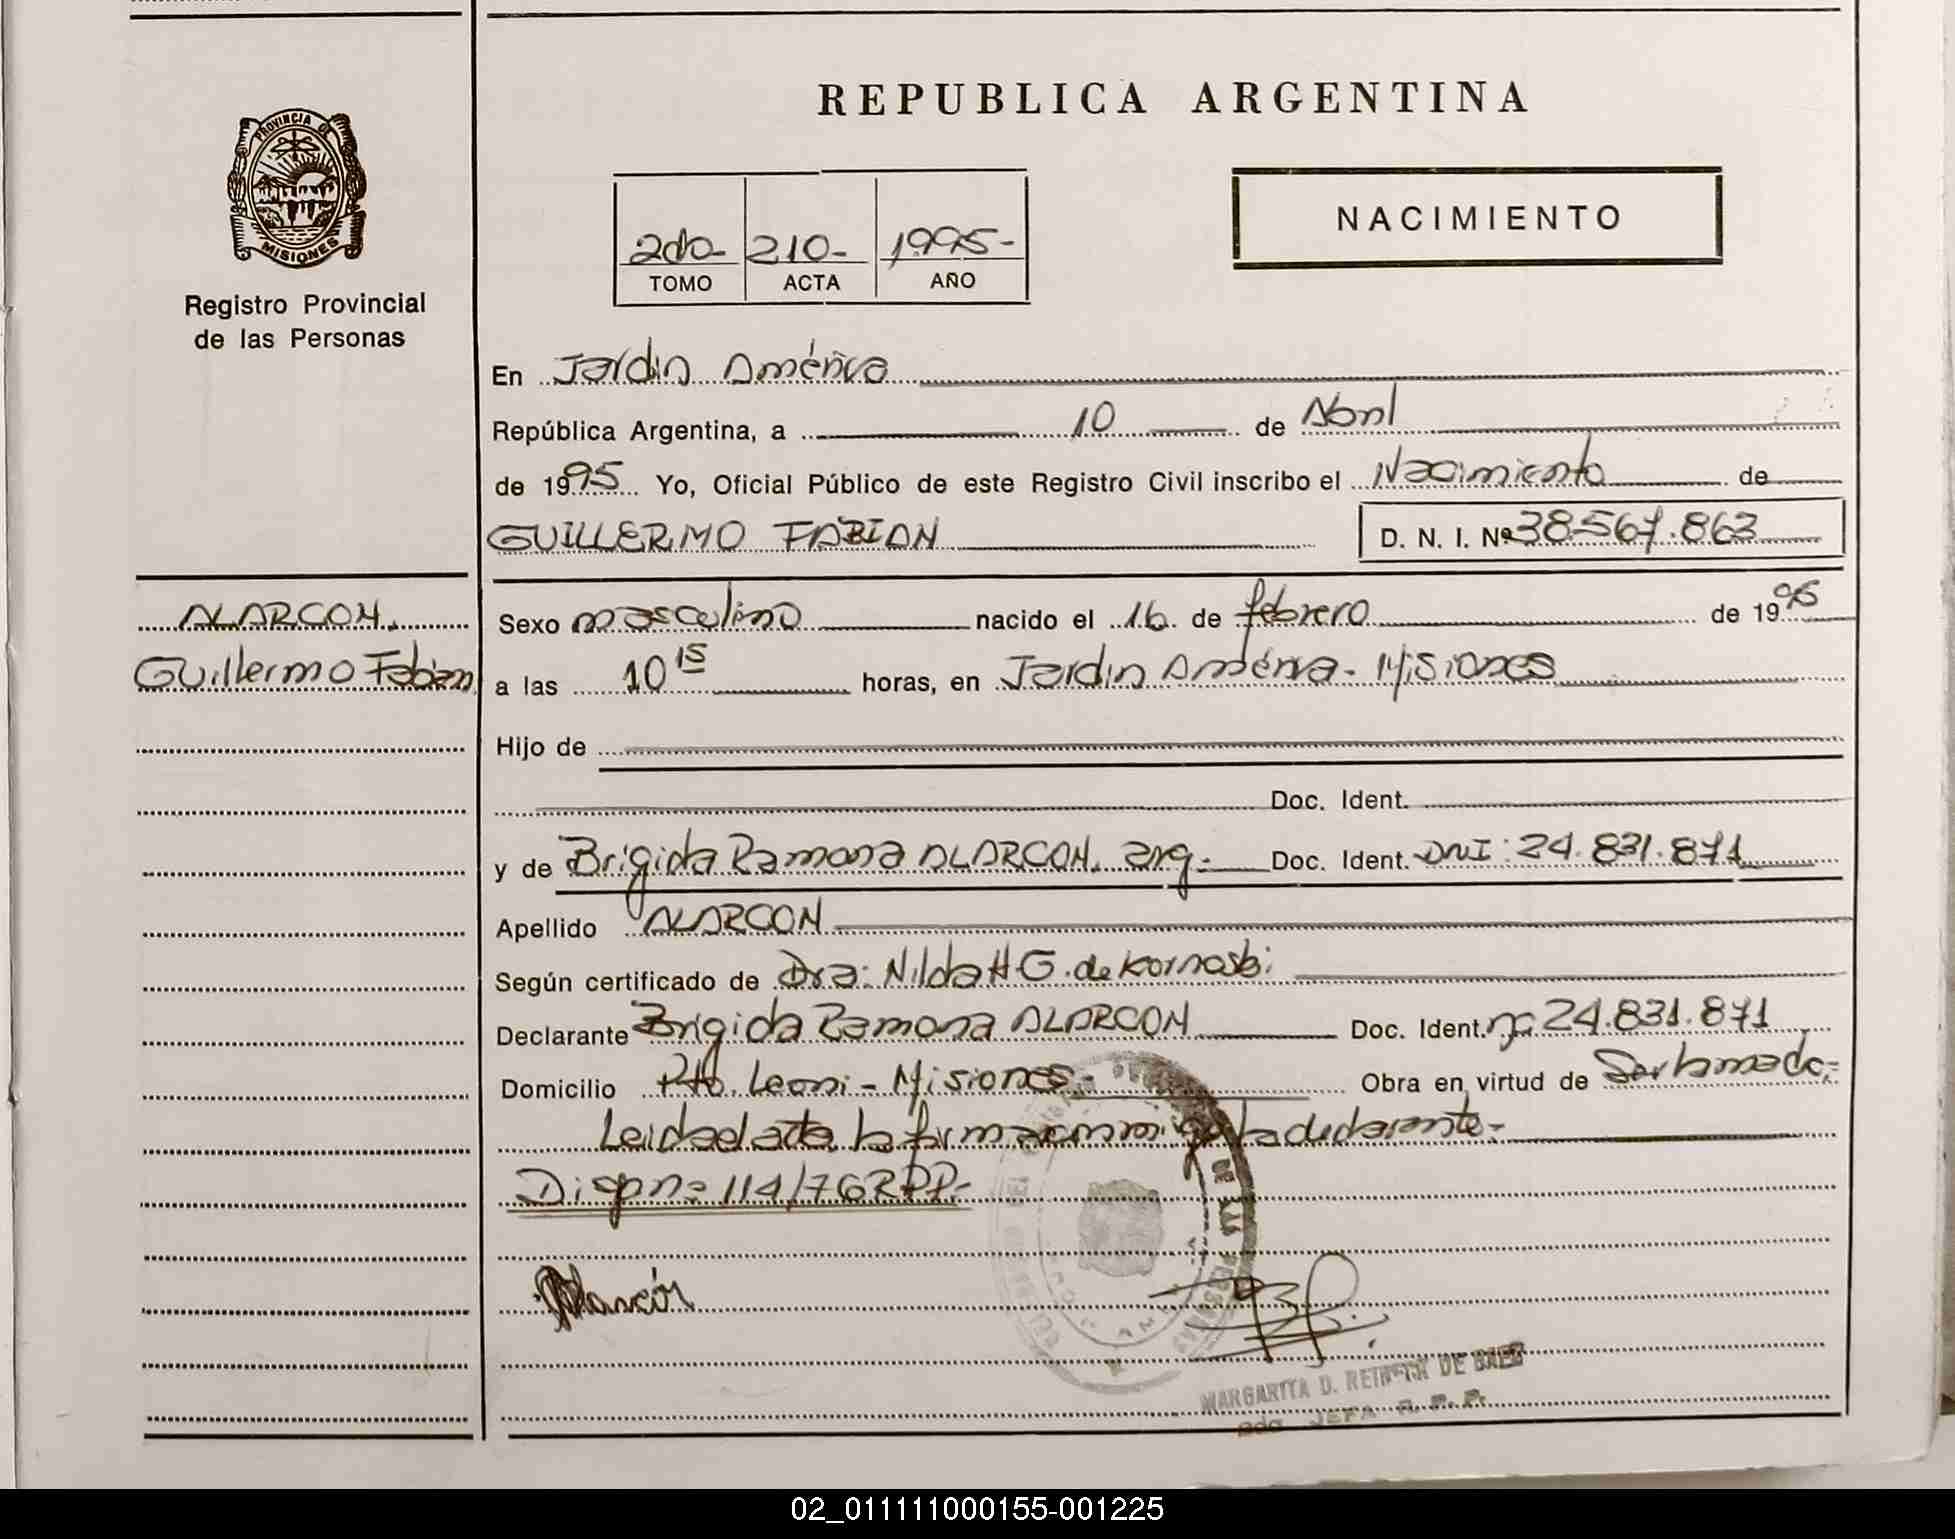 REPUBLICA ARGENTINA
PROVINCIA DE
MISIONES
Registro Provincial
de las Personas
2do- 210- 1995-
TOMO ACTA AÑO
NACIMIENTO
En Jardin América
República Argentina, a 10 de Abril
de 1995 Yo, Oficial Público de este Registro Civil inscribo el Nacimiento de
GUILLERMO FABIAN D. N. I. Nº 38.567.863
ALARCON.
Guillermo Fabian
Sexo masculino nacido el 16 de febrero de 1995
a las 10 15 horas, en Jardin América - Misiones
Hijo de
Doc. Ident.
y de Brigida Ramona ALARCON. arg.- Doc. Ident. DNI: 24.831.871
Apellido ALARCON
Según certificado de Dra: Nilda H G. de Kornoski
Declarante Brigida Ramona ALARCON Doc. Ident. nº 24.831.871
Domicilio Pto. Leoni - Misiones - Obra en virtud de Ser la madre.-
Leida el acta la firma conmigo la declarante.-
Disp nº 114/76 RPP.-
Alarcón
MARGARITA D. DE BAEZ
2da JEFA R. P. P.
02_011111000155-001225